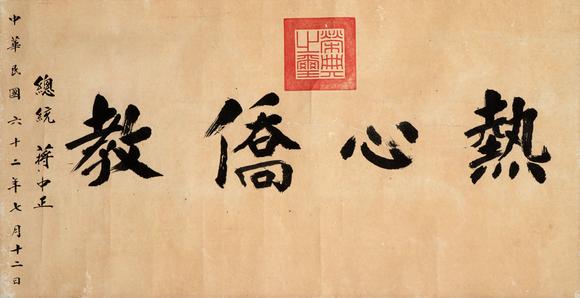 榮典之璽
熱心僑教
總統 蔣中正
中華民國六十二年七月十二日